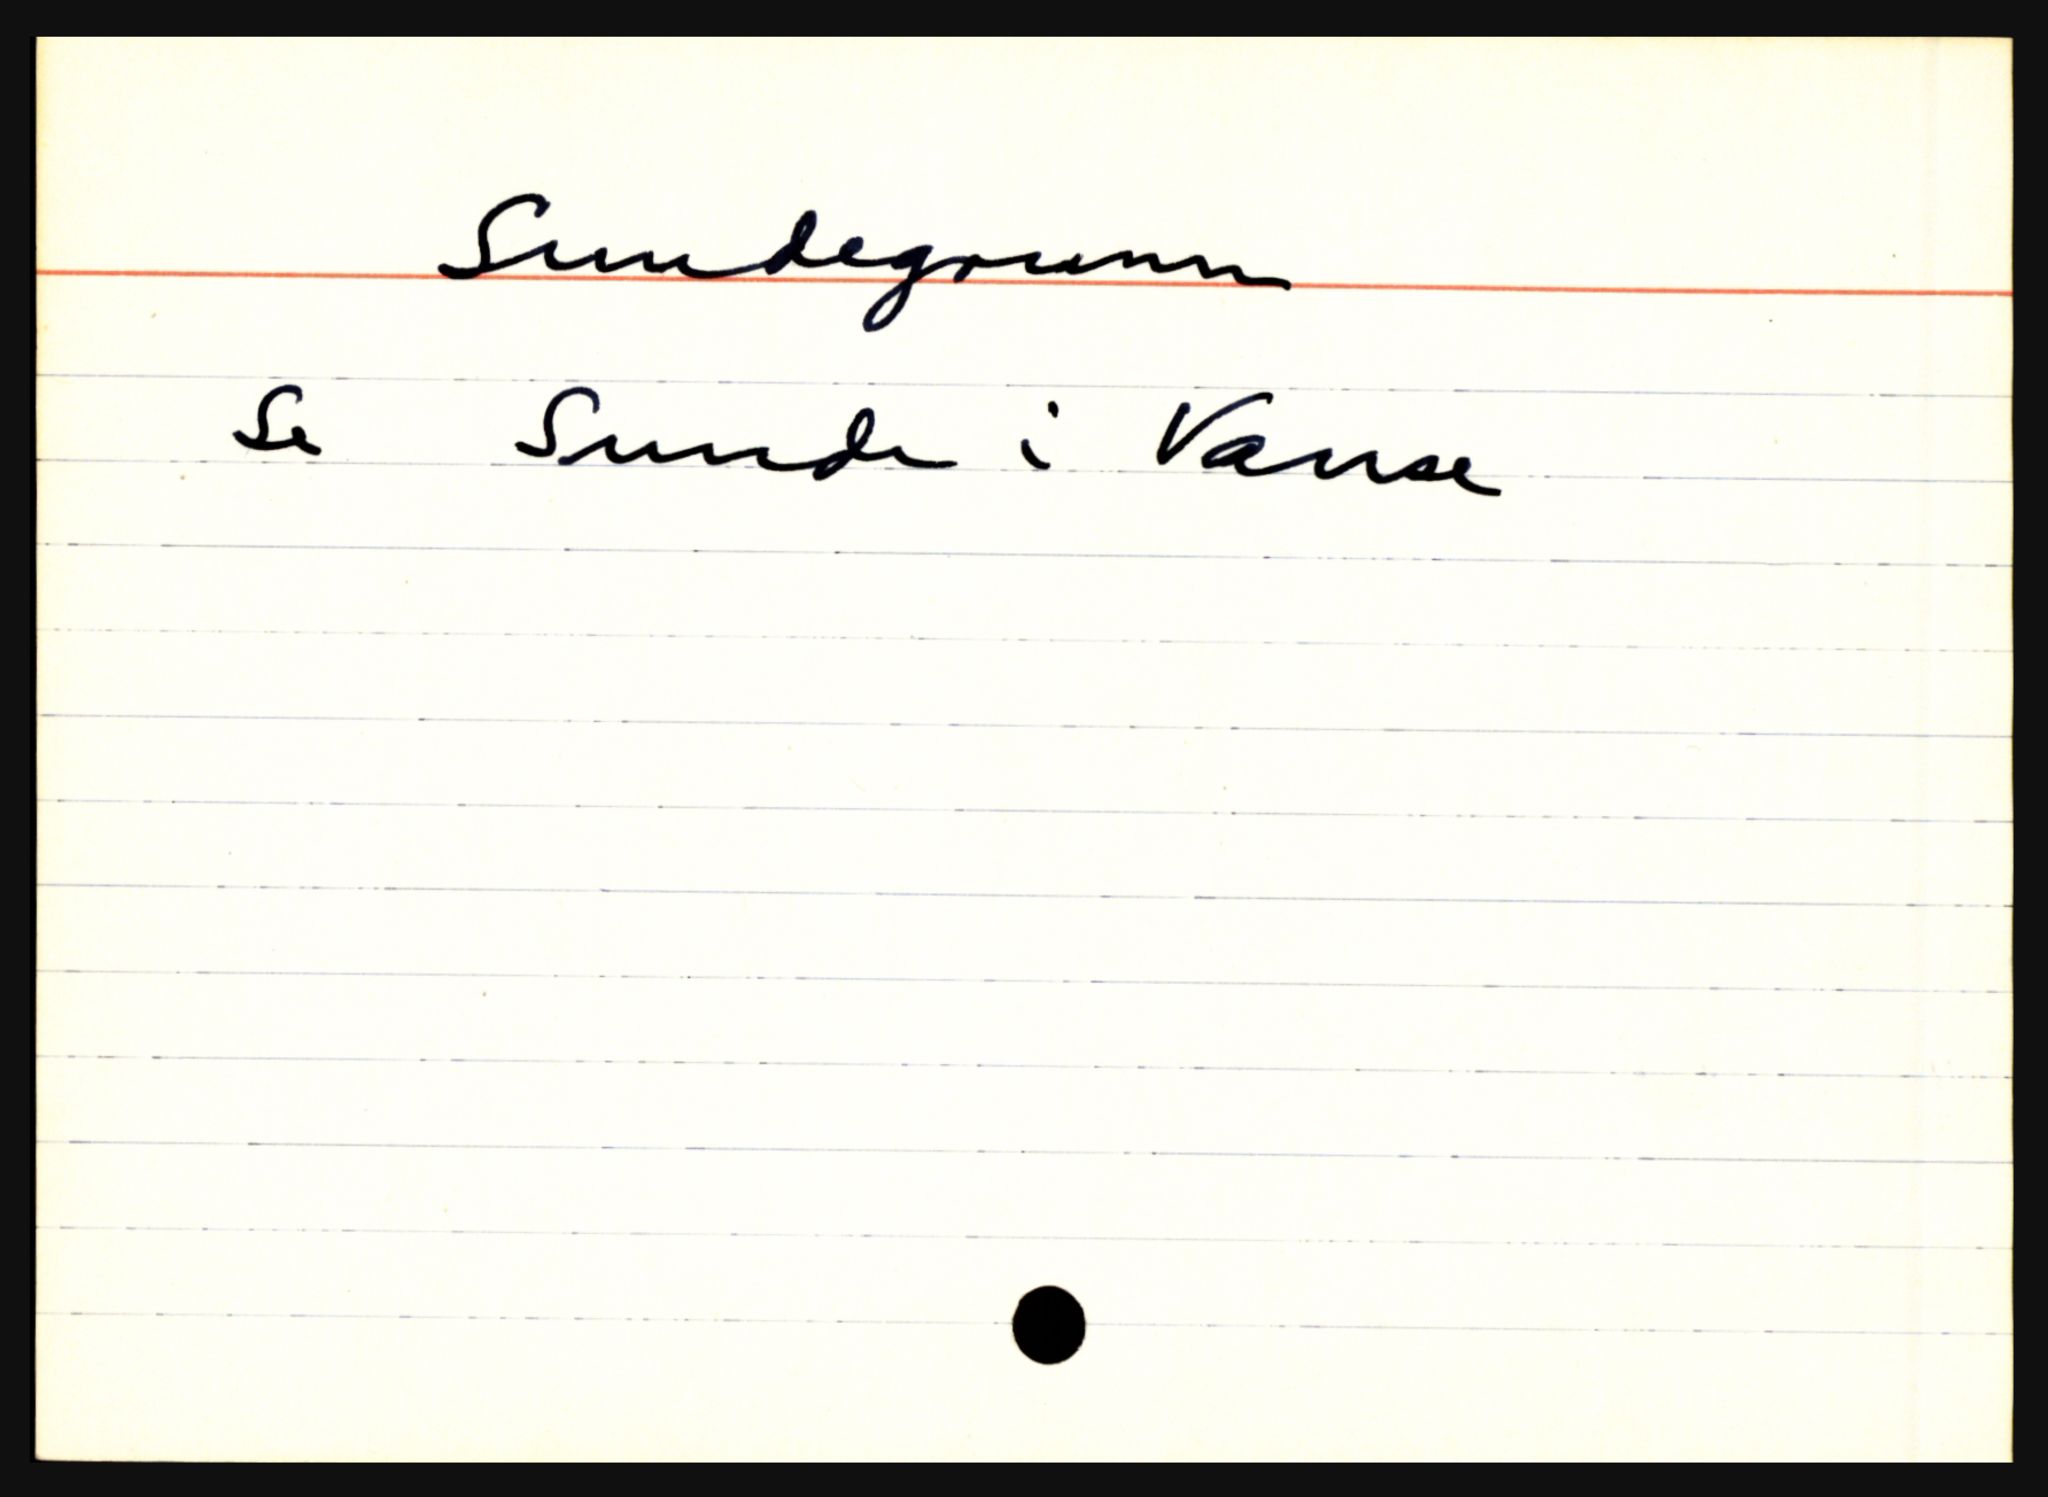 Sundegrunn
Se Sunde i Vanse